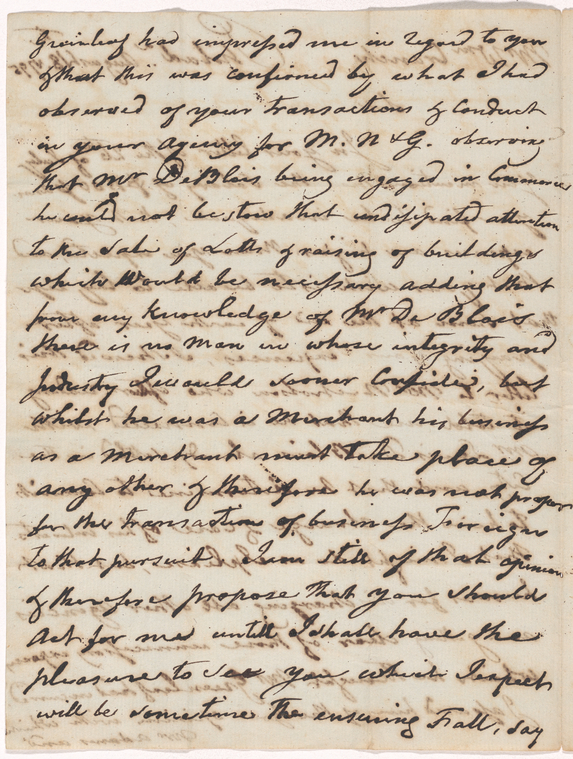 Greenleaf had impressed me in regard to you
& that this was confirmed by what I had
observed of your transactions & Conduct
in your Agency for M. N & G. observing
that Mr DeBlois being engaged in Commerce
he could not bestow that undisipated attention
to the Sale of Lotts & raising of buildings
which Would be necessary adding that
from my Knowledge of Mr De Blois
there is no Man in whose integrity and
Industry I would sooner Confide, but
whilst he was a Merchant his business
as a Merchant must take place of
any other & therefore he was not proper
for the transaction of business Foreign
to that pursuit. I am still of that opinion
& therefore propose that you should
Act for me untill I shall have the
pleasure to see you which I expect
will be sometime the ensuing Fall, say